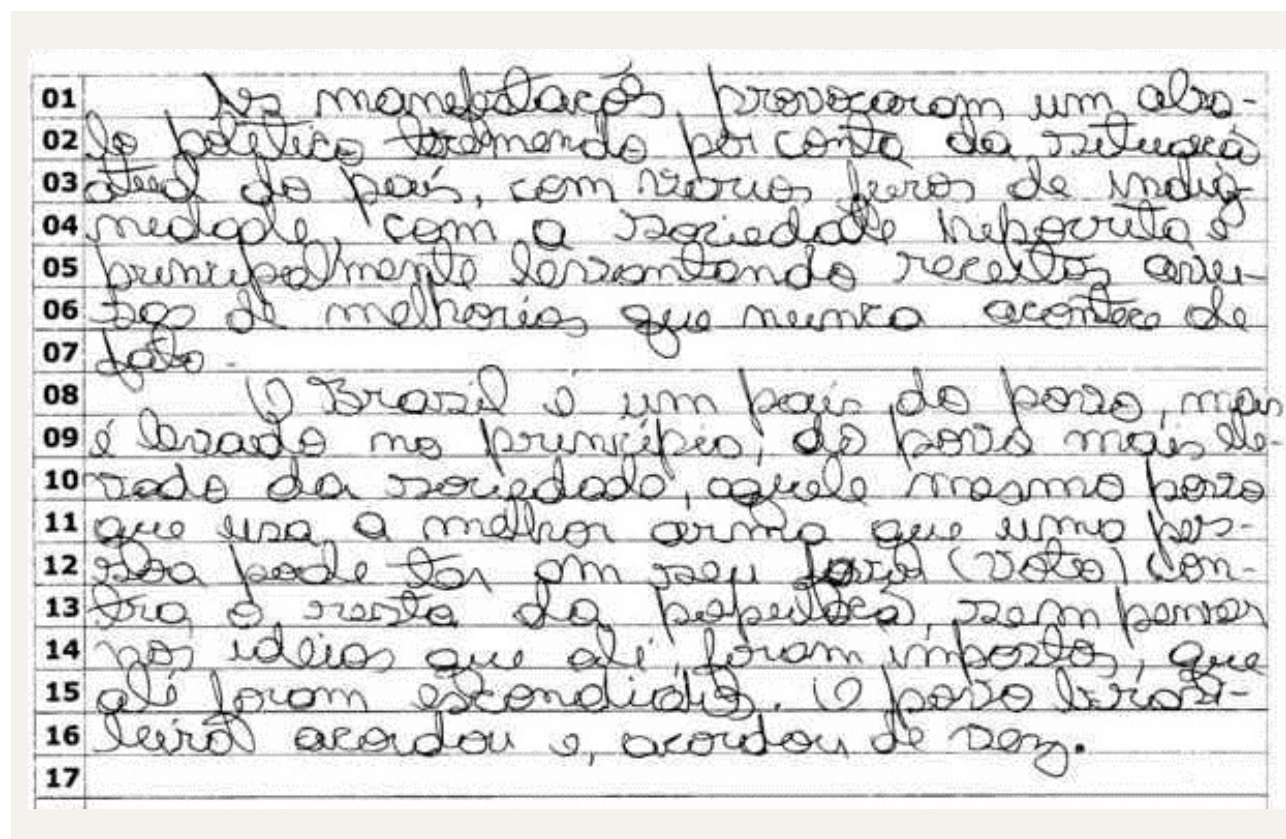 01 As manifestaçõs provocaram um aba-
02 lo político tremendo por conta da situaçã
03 atual do país, com vários furos de indig-
04 nidade, com a sociedade hipocrita e
05 principalmente levantando receitas
06 de melhorias que nunca acontece de
07 fato.
08 O Brasil é um país do povo, mais
09 é levado no princípio, do povo mais ele-
10 vado da sociedade, aquele mesmo povo
11 que usa a melhor arma que uma pes-
12 soa pode ter em seu (voto) con-
13 tra o resto da populaçã, sem pensar
14 nas idéias que ali foram impostas, que
15 ali foram escondidas. O povo brasi-
16 leiro acordou e, acordou de vez.
17